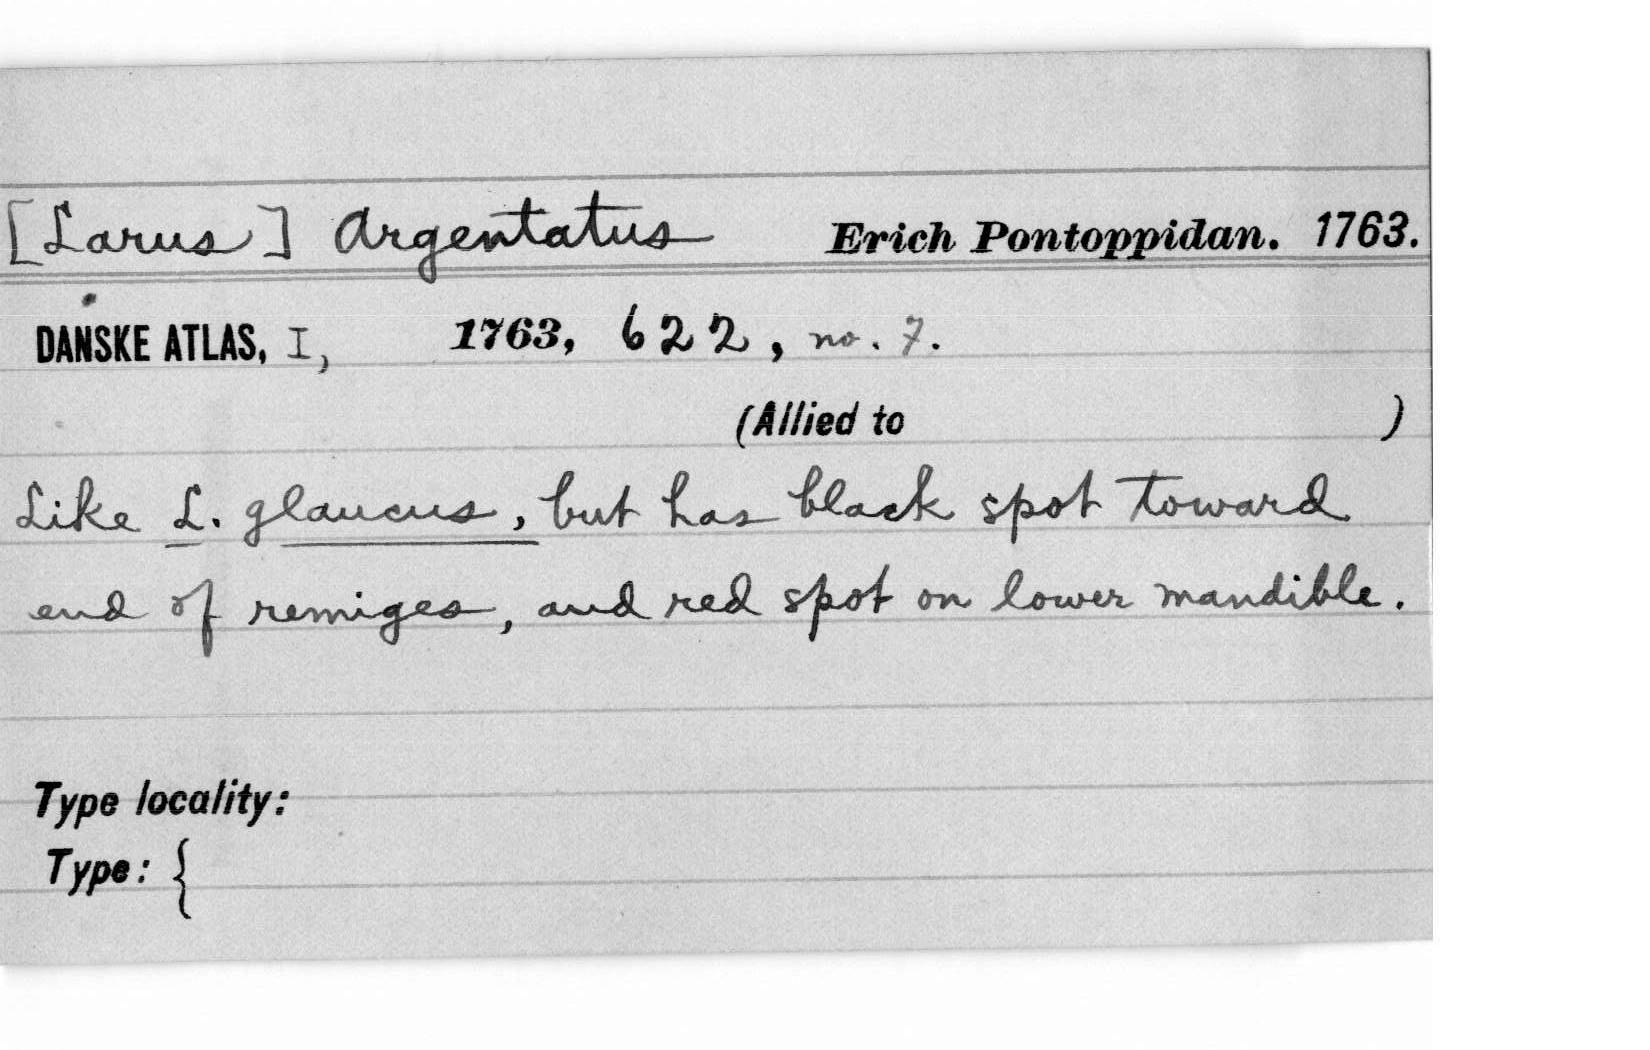 [Larus] Argentatus Erich Pontoppidan. 1763.
DANSKE ATLAS, I, 1763, 622, no. 7.
(Allied to )
Like L. glaucus, but has black spot toward
end of remiges, and red spot on lower mandible.
Type locality:
Type: {